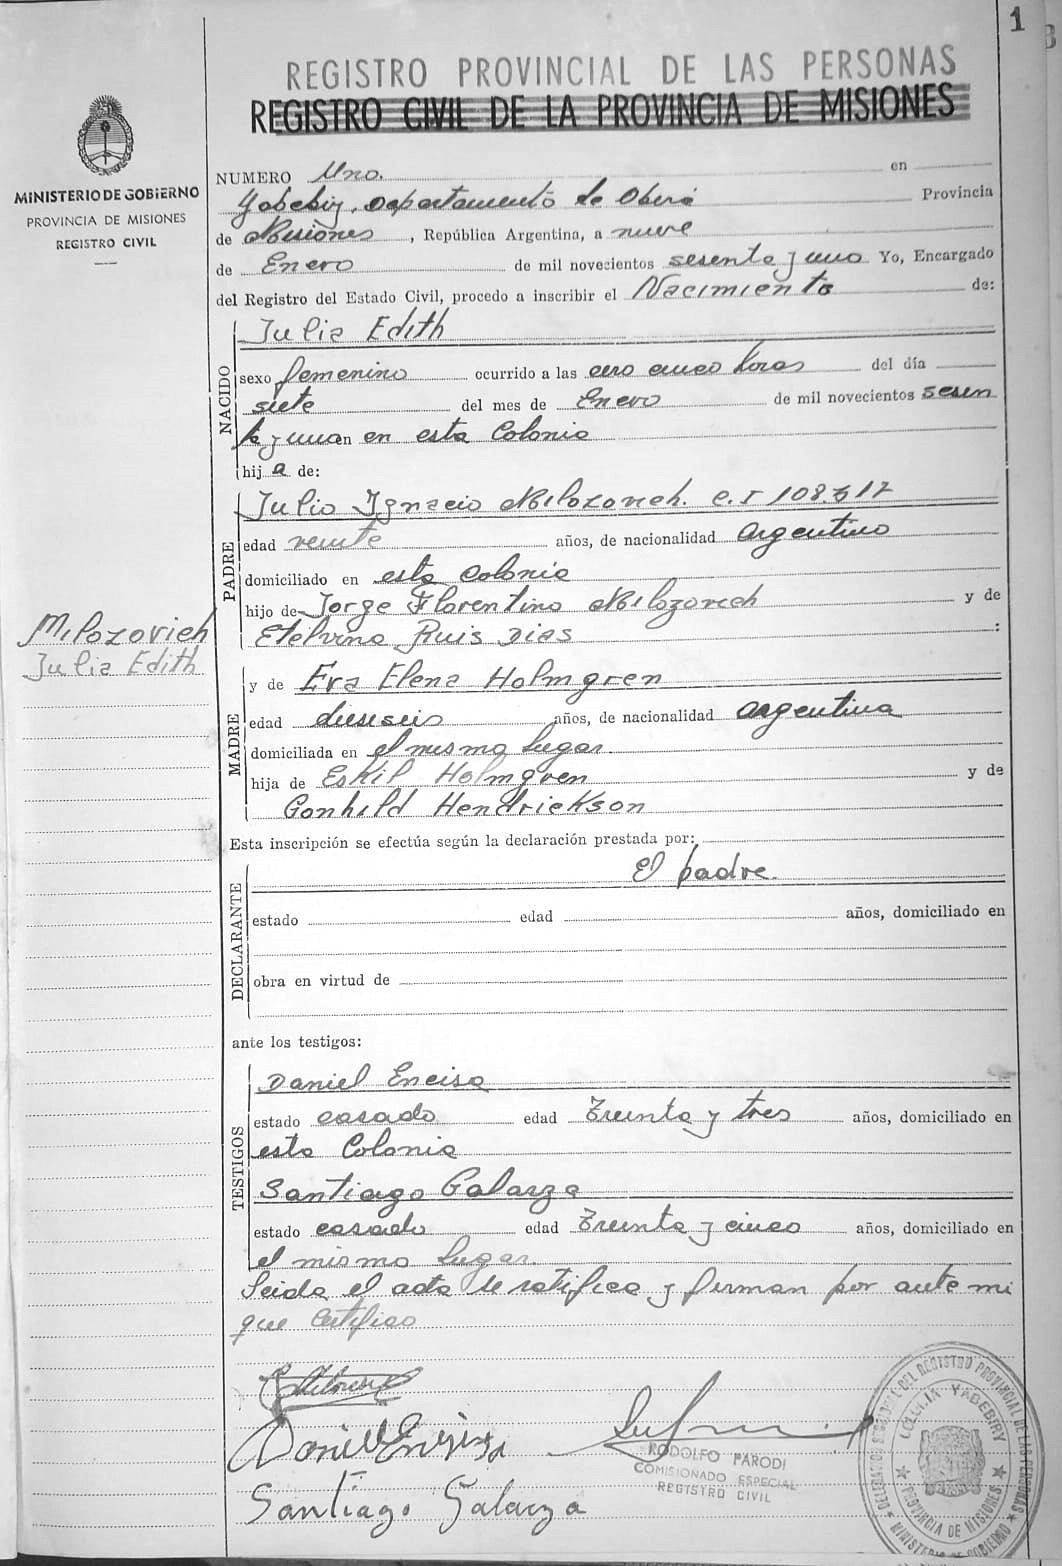 1
REGISTRO PROVINCIAL DE LAS PERSONAS
REGISTRO CIVIL DE LA PROVINCIA DE MISIONES
MINISTERIO DE GOBIERNO
PROVINCIA DE MISIONES
REGISTRO CIVIL
NUMERO Uno. en
Yabebiry, Departamento de Oberá Provincia
de Misiones, República Argentina, a nueve
de Enero de mil novecientos sesenta y uno Yo, Encargado
del Registro del Estado Civil, procedo a inscribir el Nacimiento de:
NACIDO
Julia Edith
sexo femenino ocurrido a las cero cinco horas del día
siete del mes de Enero de mil novecientos sesen
ta y uno en esta Colonia
hija de:
PADRE
Julio Ignacio Milozovich. C.I 108.
edad veinte años, de nacionalidad argentino
domiciliado en esta Colonia
hijo de Jorge Florentino Milozovich y de
Etelvina Ruis Dias :
Milozovich
Julia Edith
MADRE
y de Eva Elena Holmgren
edad dieseseis años, de nacionalidad argentina
domiciliada en el mismo lugar.
hija de Eskil Holmgren y de
Gonhild Hendrickson
Esta inscripción se efectúa según la declaración prestada por:
DECLARANTE
El padre.
estado edad años, domiciliado en
obra en virtud de
ante los testigos:
TESTIGOS
Daniel Encisa
estado casado edad Treinta y tres años, domiciliado en
esta Colonia
Santiago Galarza
estado casado edad Treinta y cinco años, domiciliado en
el mismo lugar.
Leida el acta se ratifica y firman por ante mi
que certifico
Daniel Encisa
Santiago Galarza
RODOLFO PARODI
COMISIONADO ESPECIAL
REGISTRO CIVIL
DEL REGISTRO PROVINCIAL DE LAS PERSONAS
COLONIA YABEBIRY
PROVINCIA DE MISIONES
MINISTERIO DE GOBIERNO